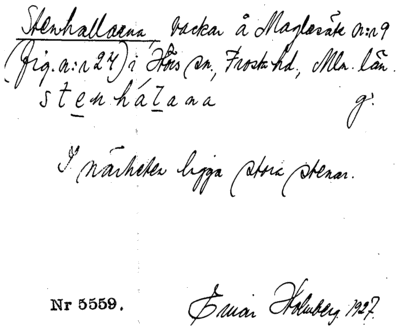 Stenhallarna, backar å Maglesäte n:r 9
(fig. n:r 27) i Hörs sn, Frosta hd, Mlm. län.
stenhálana g.
I närheten ligga stora stenar.
Nr 5559. Einar Holmberg 1927.